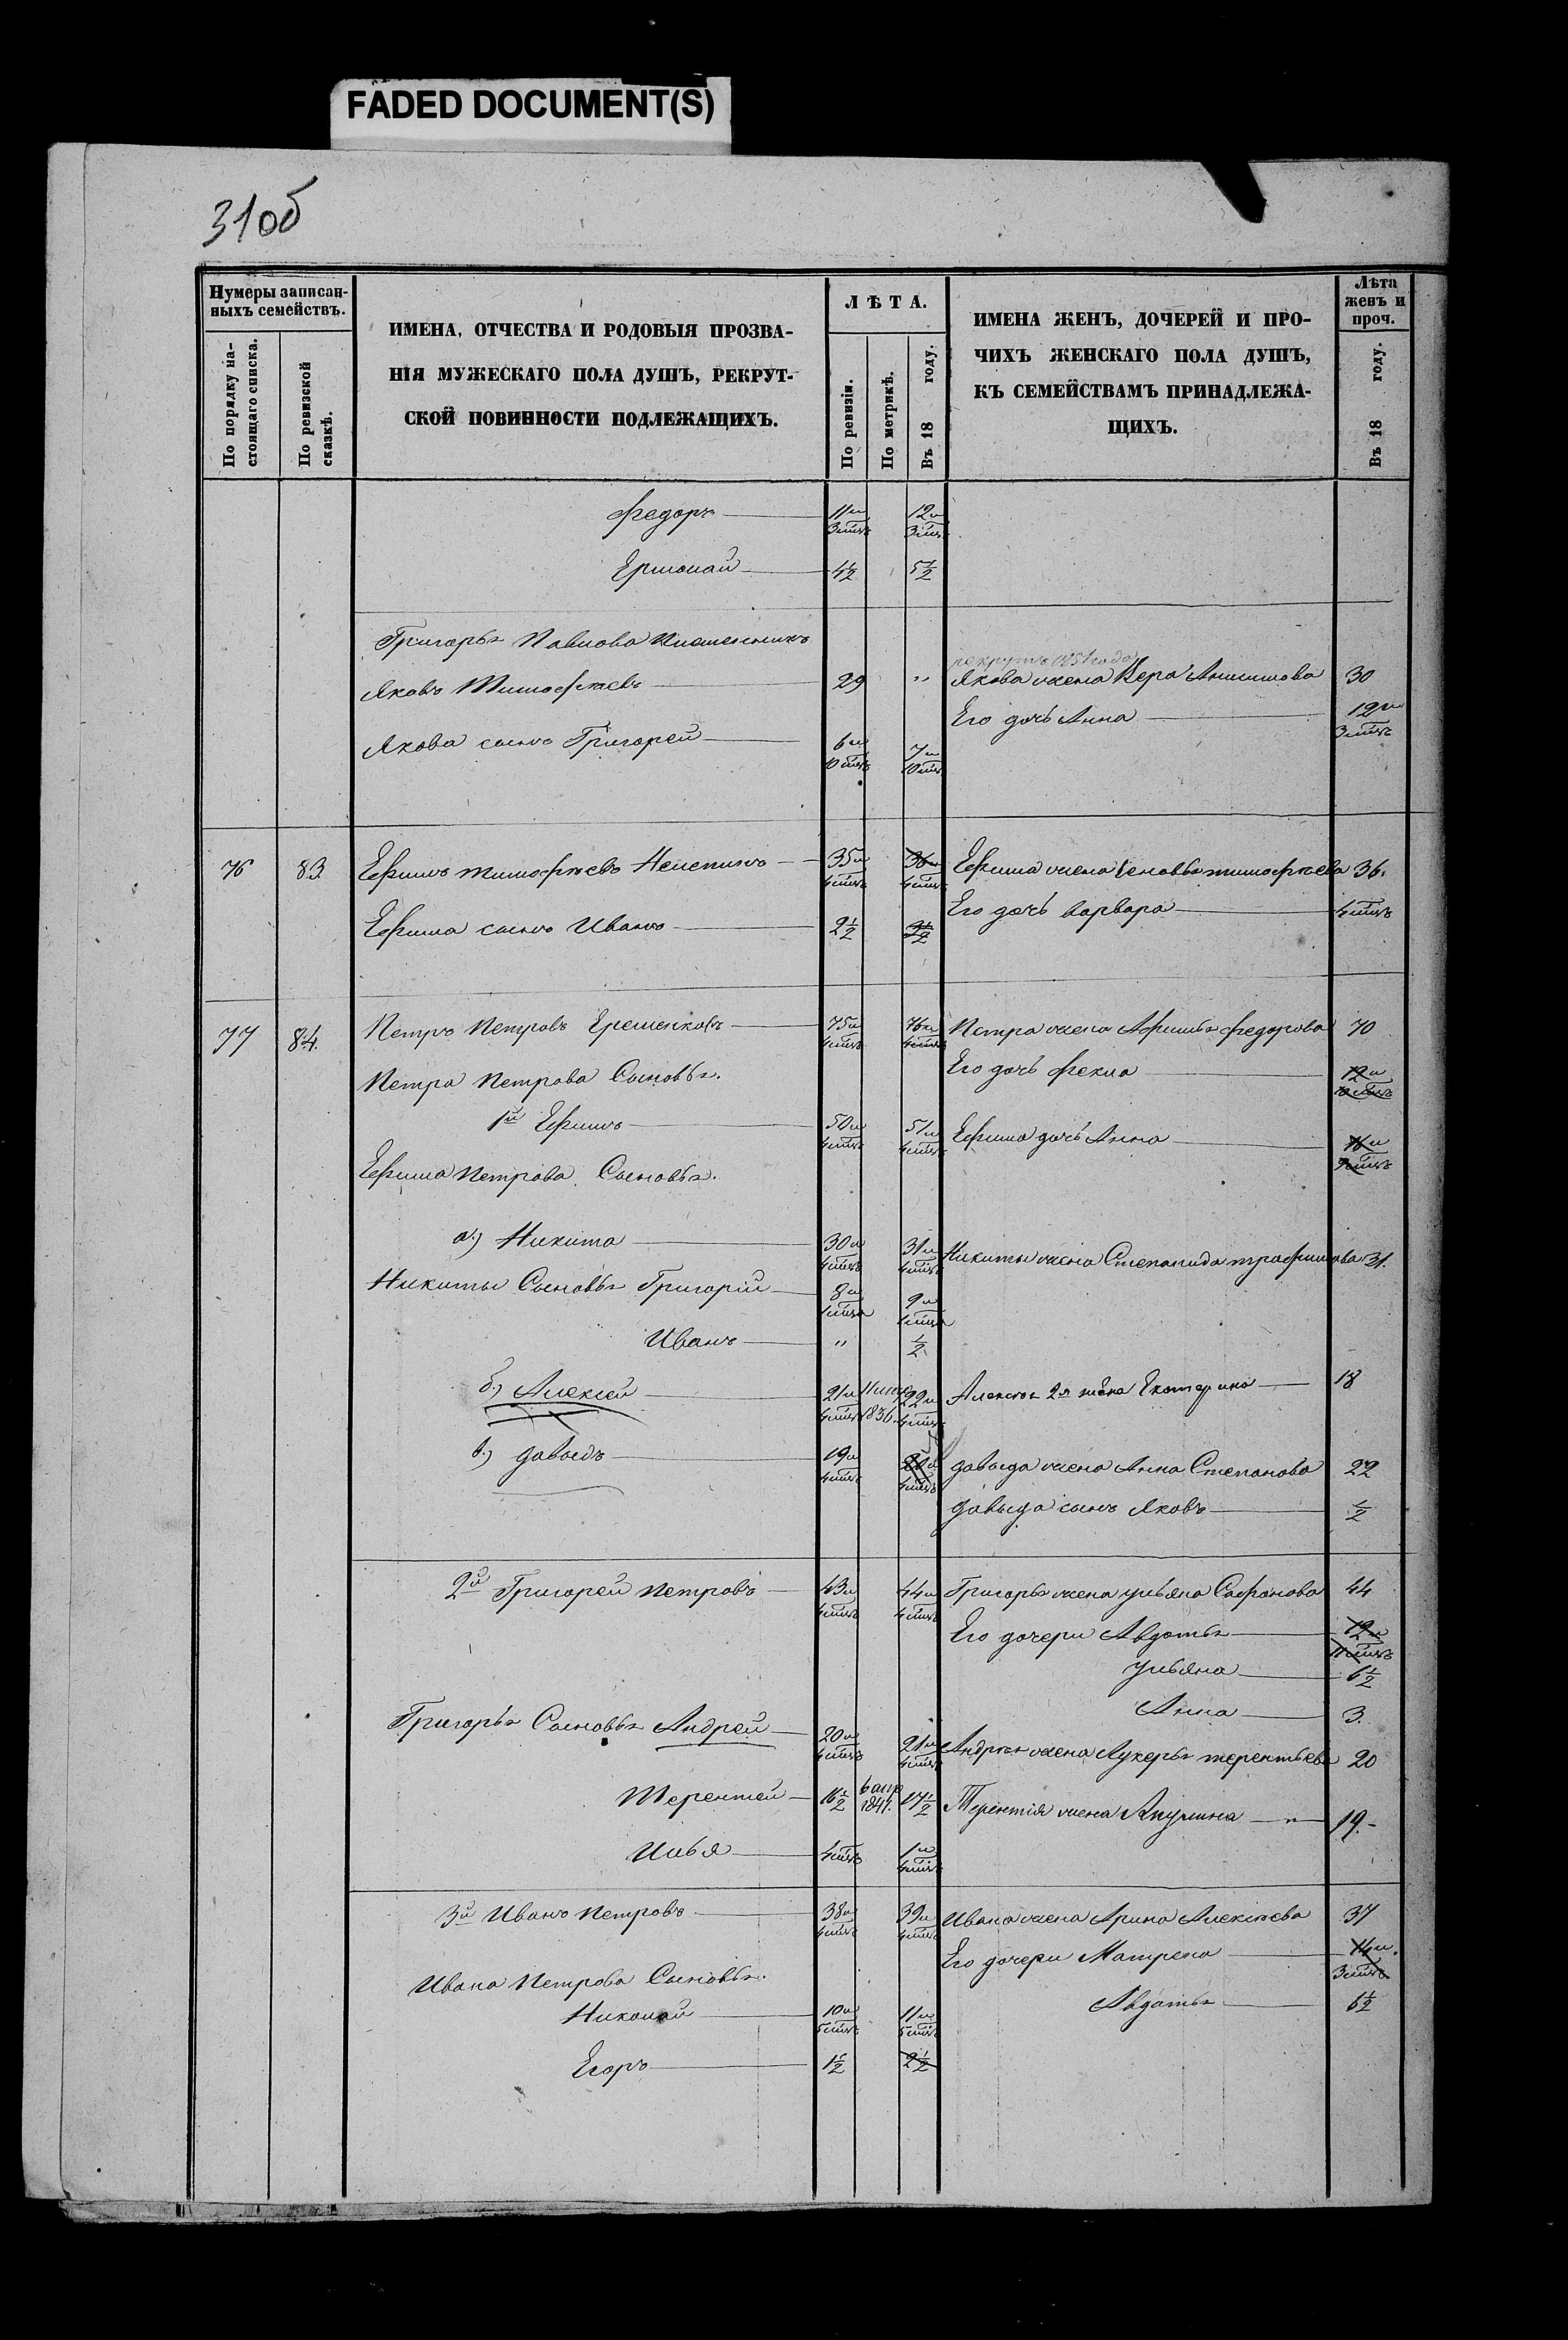 FADED DOCUMENT(S)
31об
Нумеры записан-
ныхъ семействъ.
По порядку на-
стоящаго списка.
По ревизской
сказкѣ.
ИМЕНА, ОТЧЕСТВА И РОДОВЫЯ ПРОЗВА-
НІЯ МУЖЕСКАГО ПОЛА ДУШЪ, РЕКРУТ-
СКОЙ ПОВИННОСТИ ПОДЛЕЖАЩИХЪ.
ЛѢТА.
По ревизіи.
По метрикѣ.
Въ 18 году.
ИМЕНА ЖЕНЪ, ДОЧЕРЕЙ И ПРО-
ЧИХЪ ЖЕНСКАГО ПОЛА ДУШЪ,
КЪ СЕМЕЙСТВАМЪ ПРИНАДЛЕЖА-
ЩИХЪ.
Лѣта
женъ и
проч.
Въ 18 году.
Федоръ 11 л 3 мцъ 12 л 3 мцъ
Ермолай 4½ 5½
Григорья Павлова племянникъ
рекрутъ 1851 года
Яковъ Тимофѣевъ 29 " Якова жена Вера Анисимова 30
Его дочь Анна 12 л 3 мцъ
Якова сынъ Григорей 6 л 10 мцъ 7 л 10 мцъ
76 83 Ефимъ Тимофѣевъ 35 л 4 мцъ 36 л 4 мцъ Ефима жена тимофѣева 36.
Его дочь варвара 4 мцъ
Ефима сынъ Иванъ 2½ 3½
77 84. Петръ Петровъ Ерешенковъ 75 л 4 мцъ 76 л 4 мцъ Петра жена Афимья Федорова 70
Его дочь Фекла 12 л 10 мцъ
Петра Петрова Сыновья.
1й Ефимъ 50 л 4 мцъ 51 л 4 мцъ Ефима дочь Анна 16 л мцъ
Ефима Петрова Сыновья.
а.) Никита 30 л 4 мцъ 31 л 4 мцъ Никиты жена Степанида трафимова 31.
Никиты Сыновья Григорій 8 л 1 мца 9 л 1 мца
Иванъ " ½
б.) Алексей 21 л 4 мцъ 11 1836. 22 л 4 мцъ Алексѣя 2я жена Екатерина 18
в.) давыдъ 19 л 4 мцъ 20 л 4 мцъ давыда жена Анна Степанова 22
давыда сынъ Яковъ ½
2й Григорей Петровъ 43 л 4 мцъ 44 л 4 мцъ Григорья жена ульяна Сафонова 44
Его дочери Авдотья 12 л 11 мцъ
ульяна 6½
Анна 3.
Григорья Сыновья Андрей 20 л 4 мцъ 21 л 4 мцъ Андрѣя жена Лукерья терентьева 20
Терентей 16½ 6 апр 1841. 17½ Терентія жена Акулина " 19.-
Илья 4 мцъ 1 л 4 мцъ
3й Иванъ Петровъ 38 л 4 мцъ 39 л 4 мцъ Ивана жена Арина Алексѣева 37
Его дочери Матрена 14 л. 3 мцъ
Ивана Петрова Сыновья.
Авдотья 6½
Николай 10 л 5 мцъ 11 л 5 мцъ
Егоръ 1½ 2½